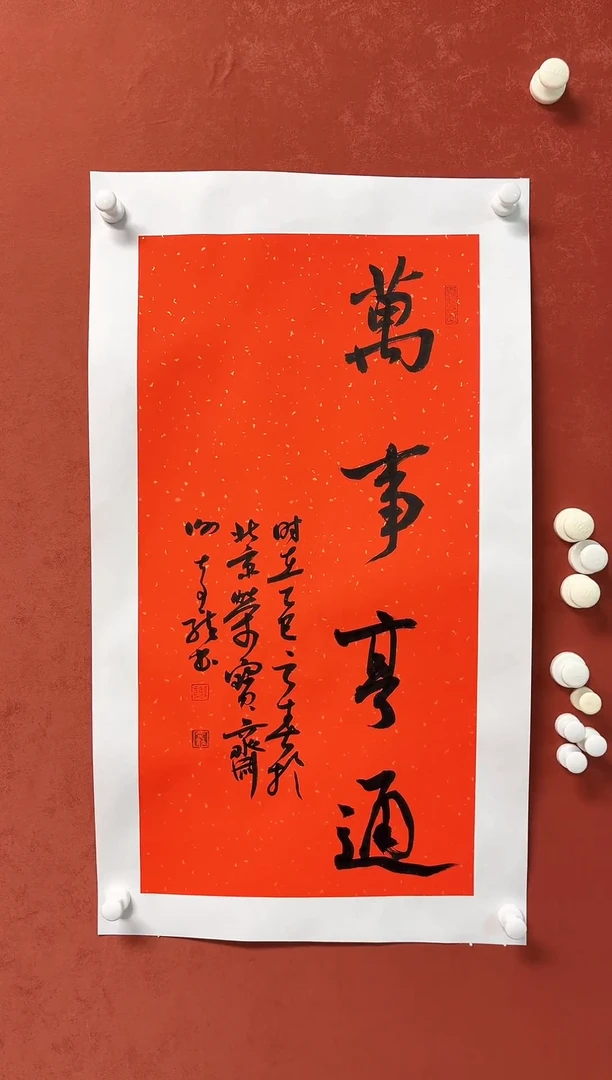 萬事亨通
时在乙巳之春於
北京榮寶齋
书